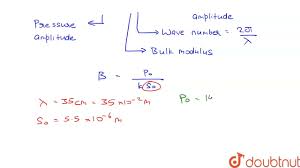 amplitude
Pressure
amplitude
Wave number = 2π/λ
Bulk modulus
B = P₀/k S₀
λ = 35cm = 35 x10⁻² m
P₀ = 14
S₀ = 5.5 x10⁻⁶ m
doubtnut